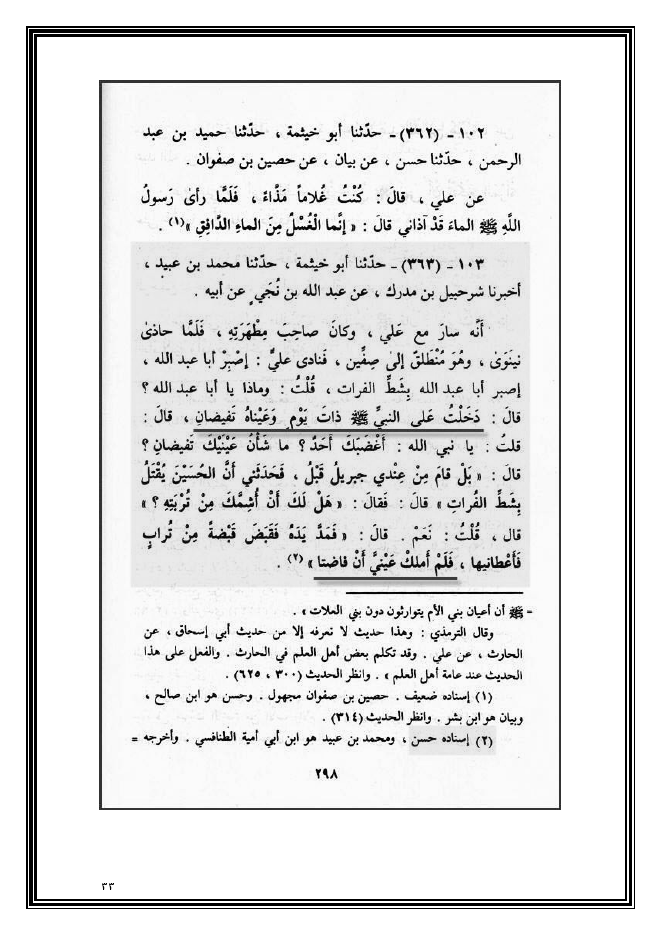 ١٠٢ ـ (٣٦٢) ـ حدّثنا أبو خيثمة ، حدّثنا حميد بن عبد
الرحمن ، حدّثنا حسن ، عن بيان ، عن حصين بن صفوان .
عن علي ، قالَ : كُنْتُ غُلاماً مَذَّاءً ، فَلَمَّا رأىٰ رَسولُ
اللَّهِ ﷺ الماءَ قَدْ آذاني قالَ : « إنَّما الْغُسْلُ مِنَ الماءِ الدَّافِقِ »(١) .
١٠٣ ـ (٣٦٣) ـ حدّثنا أبو خيثمة ، حدّثنا محمد بن عبيد ،
أخبرنا شرحبيل بن مدرك ، عن عبد الله بن نُجَيٍ عن أبيه .
أَنَّه سارَ مع عَلي ، وكانَ صاحِبَ مِطْهَرَتِهِ ، فَلَمَّا حاذىٰ
نينَوَىٰ ، وهُوَ مُنْطَلِقٌ إلىٰ صِفِّين ، فَنادى عليٌّ : إصْبِرْ أبا عبد الله ،
إصبر أبا عبد الله بِشَطِّ الفرات ، قُلْتُ : وماذا يا أبا عبد الله ؟
قالَ : دَخَلْتُ عَلى النبيِّ ﷺ ذاتَ يَوْمٍ وَعَيْناهُ تَفيضانِ ، قالَ :
قلتُ : يا نبي الله : أَغْضَبَكَ أَحَدٌ ؟ ما شَأْنُ عَيْنَيْكَ تَفيضانِ ؟
قالَ : « بَلْ قامَ مِنْ عِنْدي جبريلُ قَبْلُ ، فَحَدَّثَني أَنَّ الحُسَيْنَ يُقْتَلُ
بِشَطِّ الفُراتِ » قالَ : فَقالَ : « هَلْ لَكَ أَنْ أُشِمَّكَ مِنْ تُرْبَتِهِ ؟ »
قال ، قُلْتُ : نَعَمْ . قالَ : « فَمَدَّ يَدَهُ فَقَبَضَ قَبْضةً مِنْ تُرابٍ
فَأَعْطانيها ، فَلَمْ أَملكْ عَيْنَيَّ أَنْ فاضَتا » (٢) .
= ﷺ أن أعيان بني الأم يتوارثون دون بني العلات » .
وقال الترمذي : وهذا حديث لا تعرفه إلا من حديث أبي إسحاق ، عن
الحارث ، عن علي . وقد تكلم بعض أهل العلم في الحارث . والفعل على هذا
الحديث عند عامة أهل العلم » . وانظر الحديث (٣٠٠ ، ٦٢٥) .
(١) إسناده ضعيف . حصين بن صفوان مجهول . وحسن هو ابن صالح ،
وبيان هو ابن بشر . وانظر الحديث (٣١٤) .
(٢) إسناده حسن ، ومحمد بن عبيد هو ابن أبي أمية الطنافسي . وأخرجه =
٢٩٨
٣٣